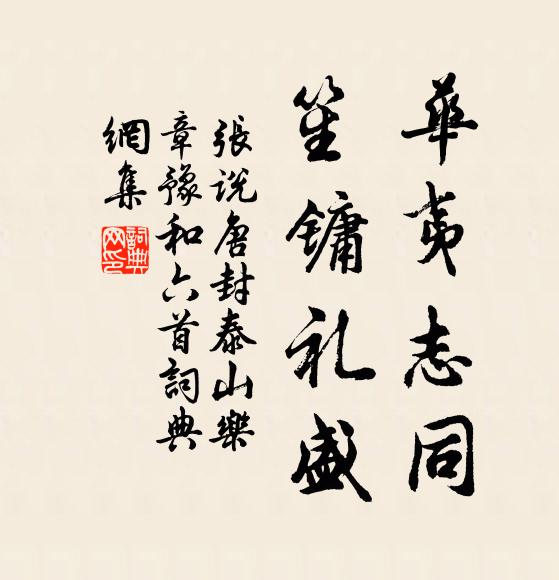 華夷志同
笙鏞礼盛
張説唐封泰山樂
章豫和六首詞典
網集
詞典
网印